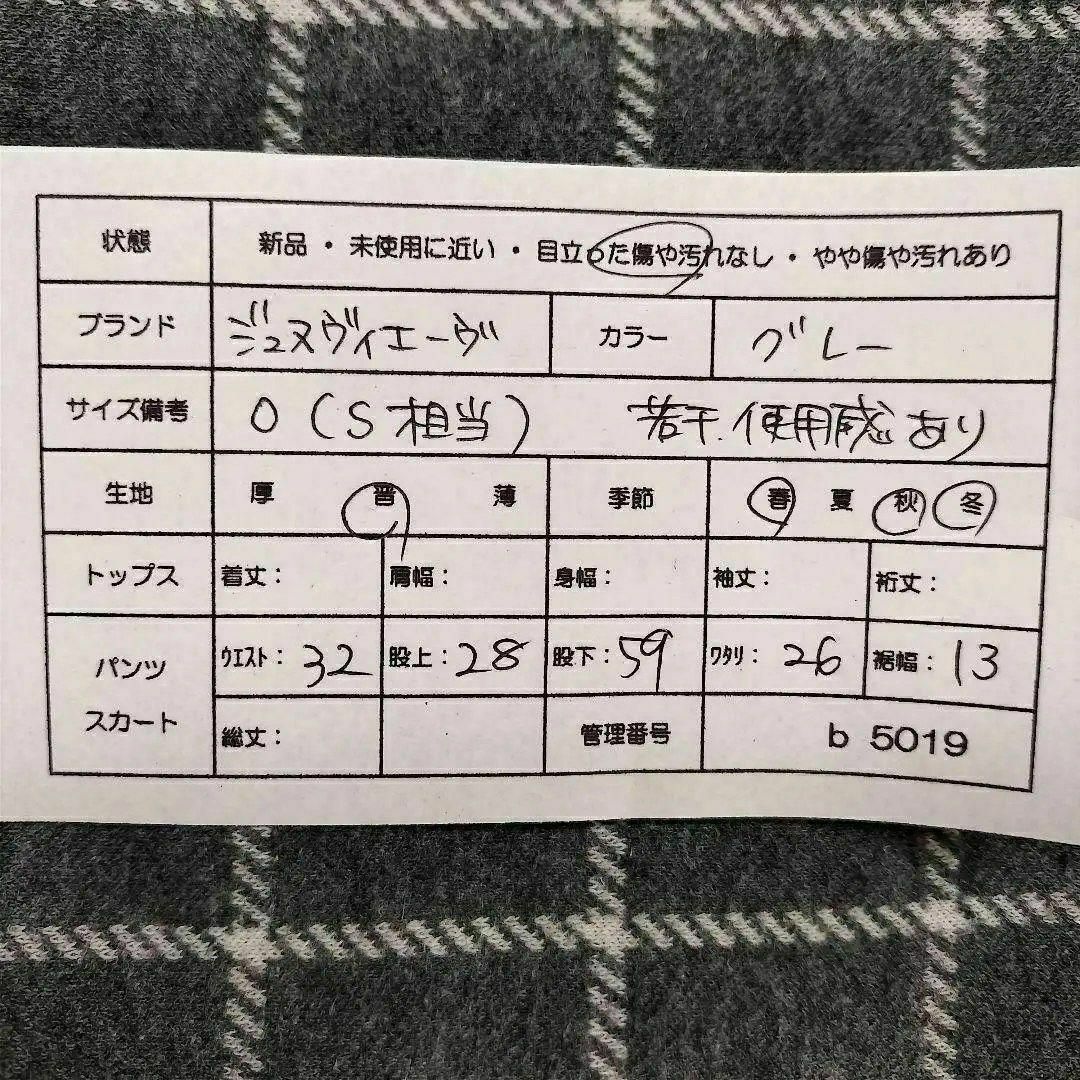 状態 新品 ・ 未使用に近い ・ 目立った傷や汚れなし ・ やや傷や汚れあり
ブランド ジュヌヴィエーヴ カラー グレー
サイズ備考 0 (S相当) 若干使用感あり
生地 厚 普 薄 季節 春 夏 秋 冬
トップス 着丈: 肩幅: 身幅: 袖丈: 裄丈:
パンツ スカート ウエスト: 32 股上: 28 股下: 59 ワタリ: 26 裾幅: 13
総丈: 管理番号 b 5019